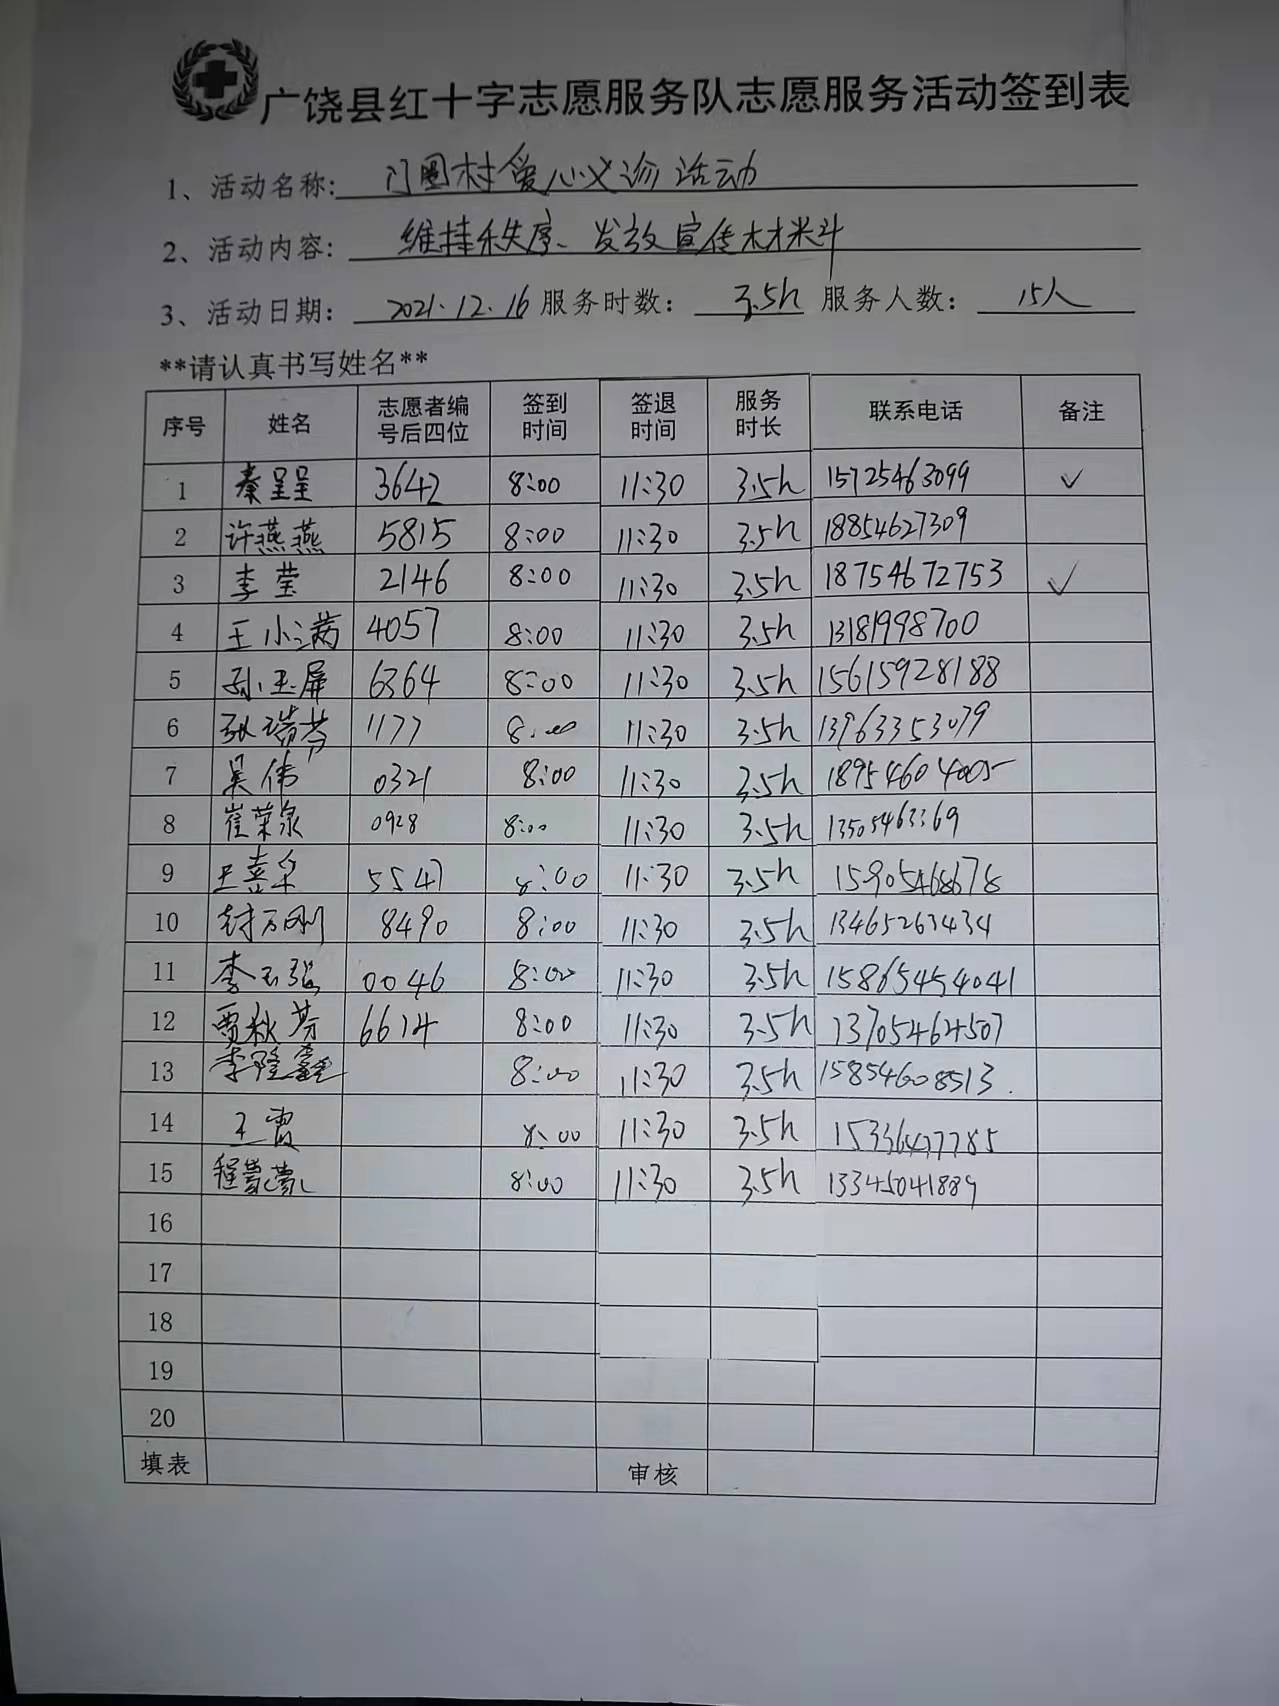 广饶县红十字志愿服务队志愿服务活动签到表
1、活动名称: 门圈村爱心义诊活动
2、活动内容: 维持秩序、发放宣传材料
3、活动日期: 2021.12.16 服务时数: 3.5h 服务人数: 15人
**请认真书写姓名**
序号 姓名 志愿者编号后四位 签到时间 签退时间 服务时长 联系电话 备注
1 秦呈呈 3642 8:00 11:30 3.5h 15725463099 ✓
2 许燕燕 5815 8:00 11:30 3.5h 18854627309
3 李莹 2146 8:00 11:30 3.5h 18754672753 ✓
4 王小满 4057 8:00 11:30 3.5h 13181998700
5 孙玉屏 6364 8:00 11:30 3.5h 15615928188
6 张瑞芳 1177 8:00 11:30 3.5h 13963353079
7 吴伟 0321 8:00 11:30 3.5h 18954604005
8 崔荣泉 0928 8:00 11:30 3.5h 13505463369
9 5547 8:00 11:30 3.5h 15905468678
10 封万刚 8490 8:00 11:30 3.5h 13465263434
11 李玉强 0046 8:00 11:30 3.5h 15865454041
12 贾秋芬 6614 8:00 11:30 3.5h 13705464507
13 李隆鑫 8:00 11:30 3.5h 15854608513
14 王霞 8:00 11:30 3.5h 15336477785
15 程梦梦 8:00 11:30 3.5h 13345041889
16
17
18
19
20
填表 审核